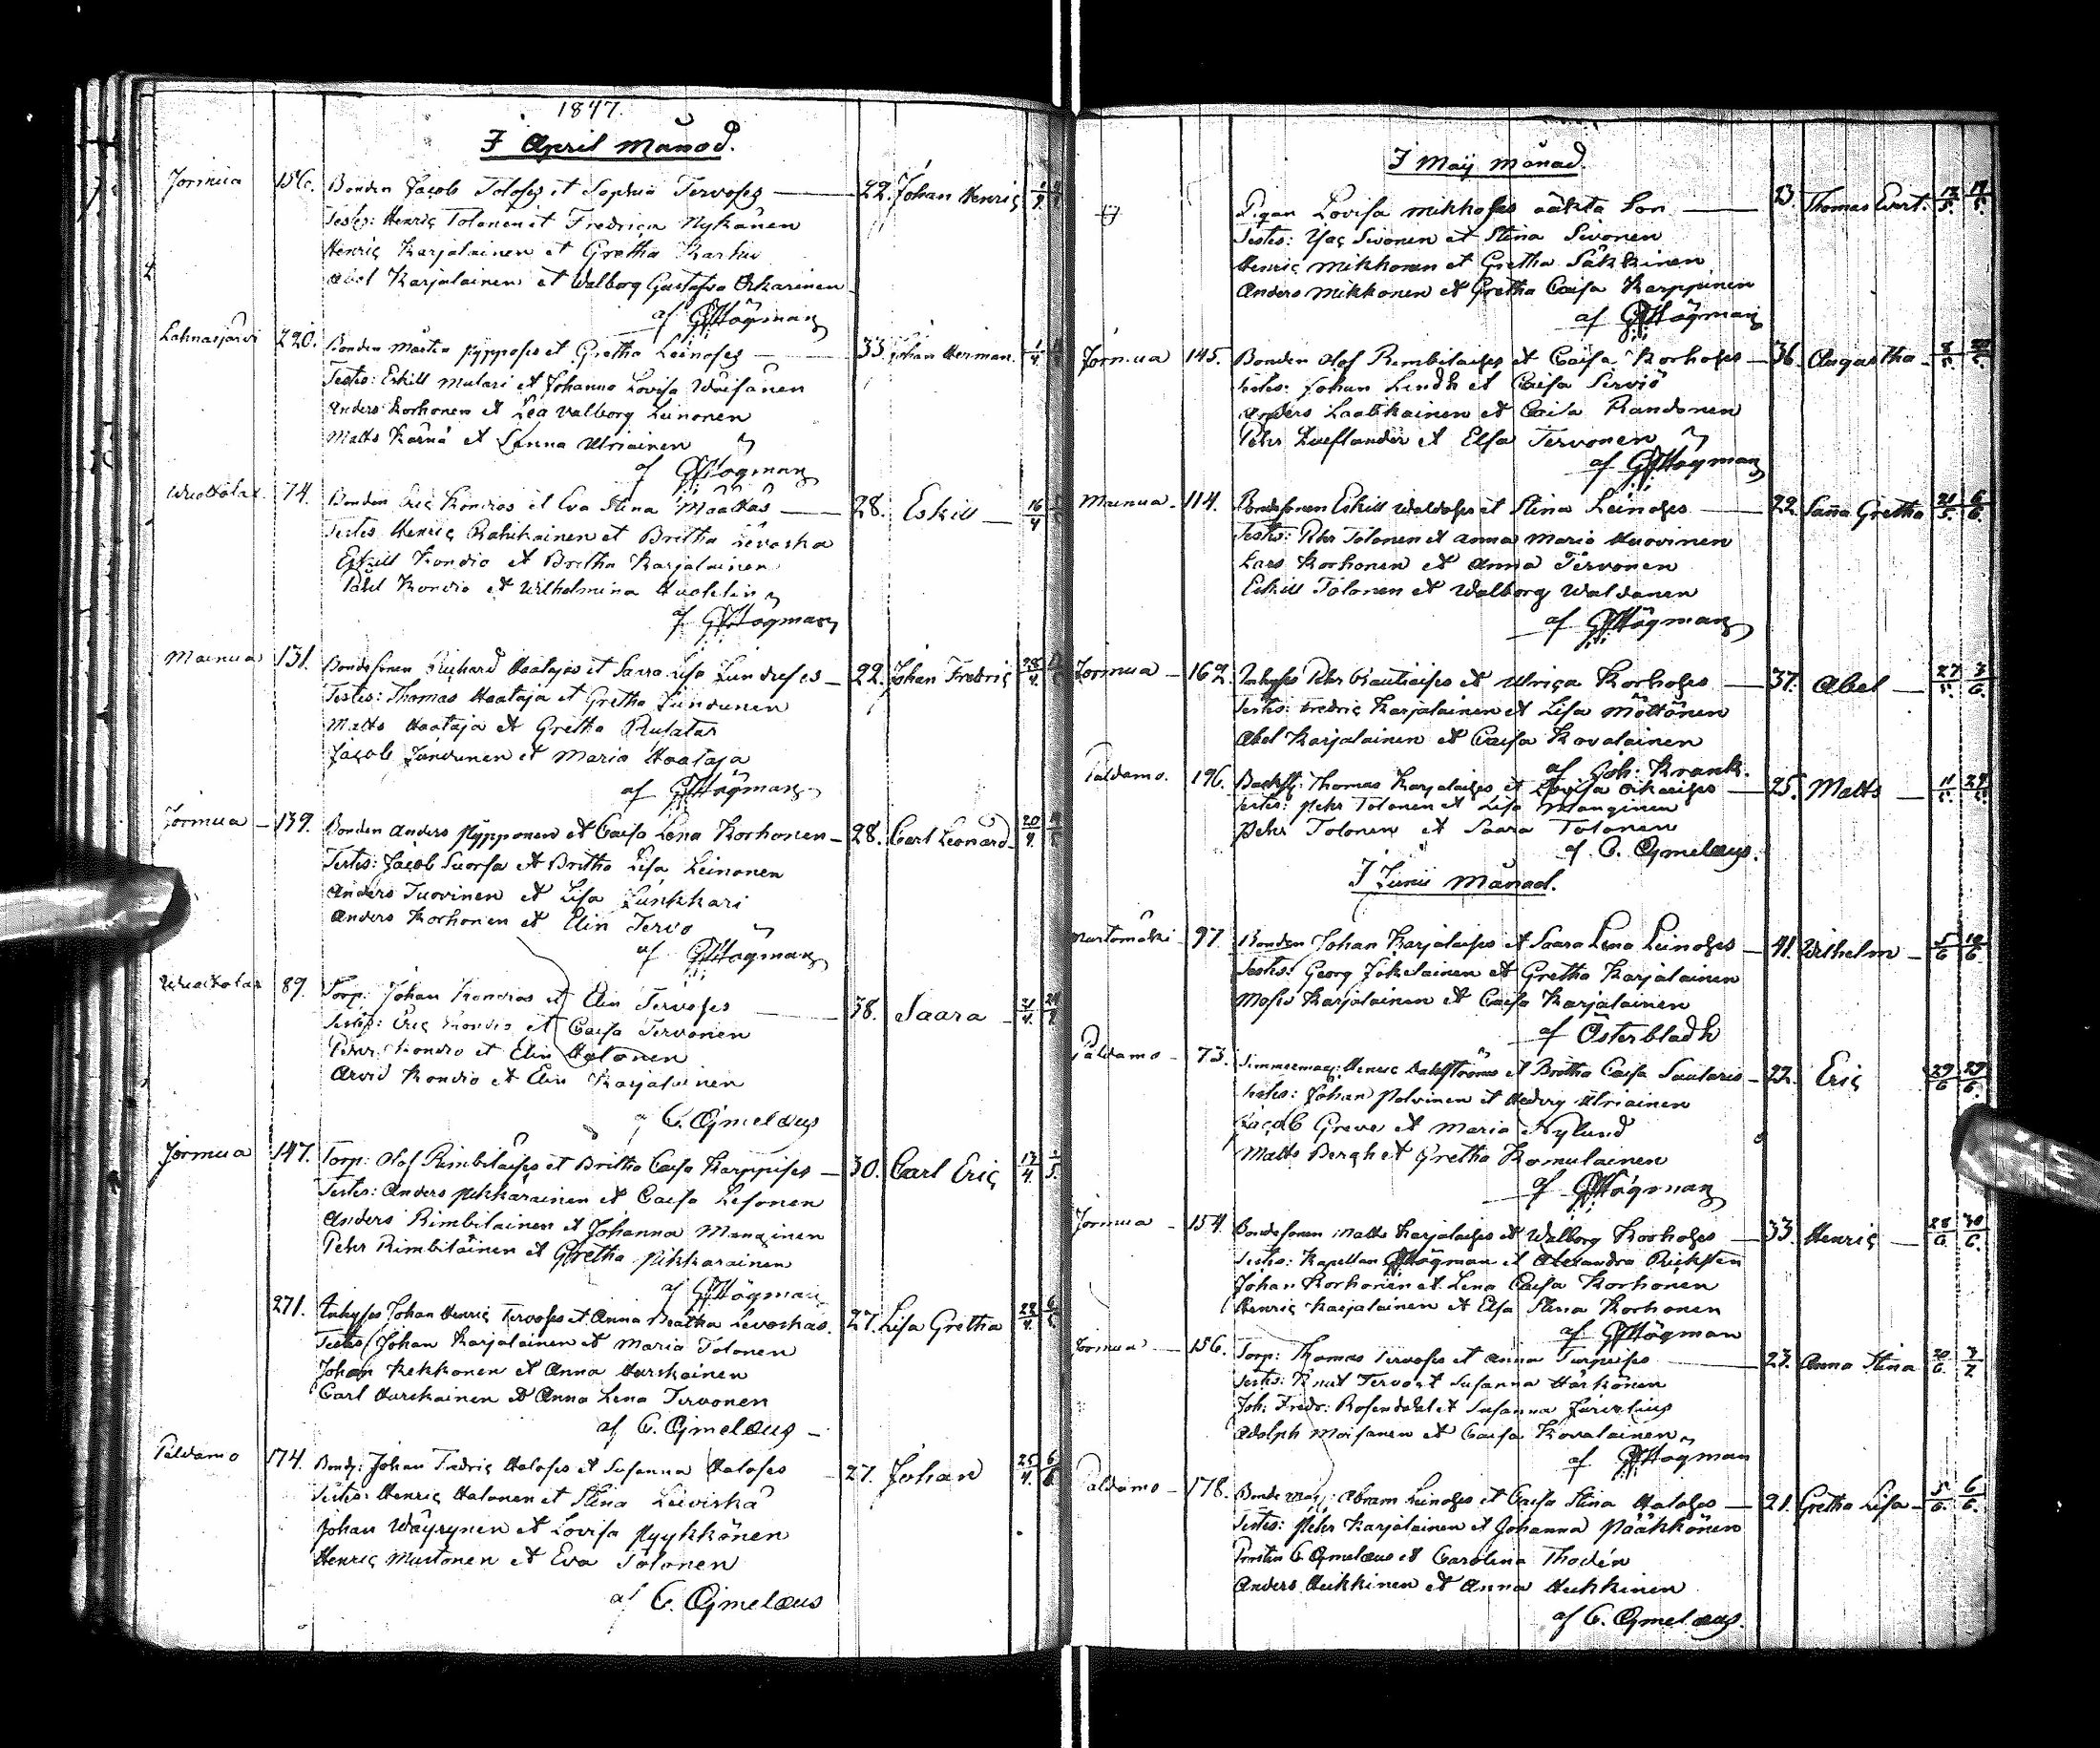 1847.
I April Månad.
Jormua 156. Bonden Jacob Toloßes et Sophia Tervoßes — 22. Johan Henric
Testes: Henric Tolonen et Fredrica Nykänen
Henric Karjalainen et Gretha Karhu
Abel Karjalainen et Walborg Gustafva Oikarinen
af GFHögman
Lahnasjärvi 220. Bonden Mårten Pyppoßes et Gretha Leinoßes — 33. Johan Herman.
Testes: Eskill Mulari et Johanna Lovisa Wäisänen
Anders Korhonen et Lea Valborg Leinonen
Matts Kärnä et Sanna Utriainen
af GFHögman
Wuottolax 74. Bonden Eric Kondios et Eva Stina Määttäs — 28. Eskill — 16/4
Testes Henric Rahikainen et Britha Levoska
Eskill Kondio et Britha Karjalainen
Påhl Kondio et Wilhelmina
af GFHögman
Mainua 131. Bondesonen Richard Haatajas et Saara Lisa Jundußes — 22. Johan Fredric 28/4
Testes: Thomas Haataja et Gretha Jundunen
Matts Haataja et Gretha Rusatar
Jacob Jundunen et Maria Haataja
af GFHögman
Jormua — 139. Bonden Anders Pypponen et Caisa Lena Korhonen — 28. Carl Leonard 20/4
Testes: Jacob Suorsa et Britha Lisa Leinonen
Anders Tuovinen et Lisa Junkkari
Anders Korhonen et Elin Tervo
af GFHögman
Wuottolax 89. Torp: Johan Kondios et Elin Tervoßes — 38. Saara 21/4
Testes: Eric Kondio et Caisa Tervonen
Pehr Kondio et Elin Halonen
Arvid Kondio et Elin Karjalainen
C. Cajmelæus
Jormua 147. Torp: Olof Rimbiläißes et Britha Caisa Karppißes — 30. Carl Eric 13/4
Testes: Anders Pikkarainen et Caisa Lesonen
Anders Rimbilainen et Johanna Manginen
Pehr Rimbiläinen et Gretha Pikkarainen
af GFHögman
271. Inhyses Johan Henric Tervoßes et Anna Beatha Levoskas. 27. Lisa Gretha 22/4
Testes Johan Karjalainen et Maria Tolonen
Johan Kekkonen et Anna Hurskainen
Carl Hurskainen et Anna Lena Tervonen
af C. Cajmelæus —
Paldamo 174. Bonds: Johan Fredric Haloßes et Susanna Haloßes 27. Johan 25/4
Testes: Henric Halonen et Stina Leiviskä
Johan Wäyrynen et Lovisa Pyykkönen
Henric Mustonen et Eva Tolonen
af C. Cajmelæus
I Maij Månad.
Pigan Lovisa Mikkoßes oäkta Son — 23. Thomas Evert.
Testes: Isac Sivonen et Stina Sivonen
Henric Mikkonen et Gretha Säkkinen
Anders Mikkonen et Gretha Caisa Karppinen
af GFHögman
Jormua 145. Bonden Olof Rimbilaißes et Caisa Korhoßes — 36. Augustha
Testes: Johan Lindh et Caisa Serviö
Anders Laatikainen et Caisa Randonen
Pehr et Elsa Tervonen
af GFHögman
Mainua 114. Bondesonen Eskill Waldoßes et Stina Leinoßes — 22. Saña Gretha 21/5. 6/6.
Testes: Pehr Tolonen et Anna Maria Huovinen
Lars Korhonen et Anna Tervonen
Eskill Tolonen et Walborg Waldanen
af GFHögman
Jormua — 162. Inhyses Pehr et Ulrica Korhoßes — 37. Abel — 27/5. 3/6.
Testes: Fredric Karjalainen et Lisa Möttönen
Abel Karjalainen et Caisa Kovalainen
af Joh: Krank.
Paldamo. 196. Backst: Thomas Karjalaißes et Lovisa Oikarißes — 25. Matts —
Testes: Pehr Tolonen et Lisa Manginen
Pehr Tolonen et Saara Tolonen
af C. Cajmelæus.
I Junii Månad.
97. Bonden Johan Karjalaißes et Saara Lena Leinoßes — 41. Wilhelm —
Testes: Georg Jokelainen et Gretha Karjalainen
Moses Karjalainen et Caisa Karjalainen
af Österbladh
Paldamo — 73. Timmerman: Henric Dahlströms et Britha Caisa Sautaris — 22. Eric 29/6 29/6.
Testes: Johan Polvinen et Hedvig Utriainen
Jacob Greve et Maria Nylund
Matts Bergh et Gretha Komulainen
af GFHögman
Jormua — 154. Bondesonen Matts Karjalaißes et Walborg Korhoßes — 33. Henric — 28/6. 30/6.
Testes: Kapellan GFHögman et Alexandra
Johan Korhonen et Lena Caisa Korhonen
Henric Karjalainen et Elsa Stina Korhonen
af GFHögman
Jormua — 156. Torp: Thomas Tervoßes et Anna Turpeißes — 23. Anna Stina
Testes: Knut Tervo et Susanna Härkönen
Joh: Fredr: Rosendahl et Susanna Juvelius
Adolph Moisanen et Caisa Kovalainen
af GFHögman
Paldamo — 178. Bonde Abram Leinoßes et Caisa Stina Haloßes — 21. Gretha Lisa — 5/6. 6/6.
Testes: Pehr Karjalainen et Johanna Pääkkönen
Prosten C. Cajmelæus et Carolina Thodén
Anders Heikkinen et Anna Heikkinen
af C. Cajmelæus.